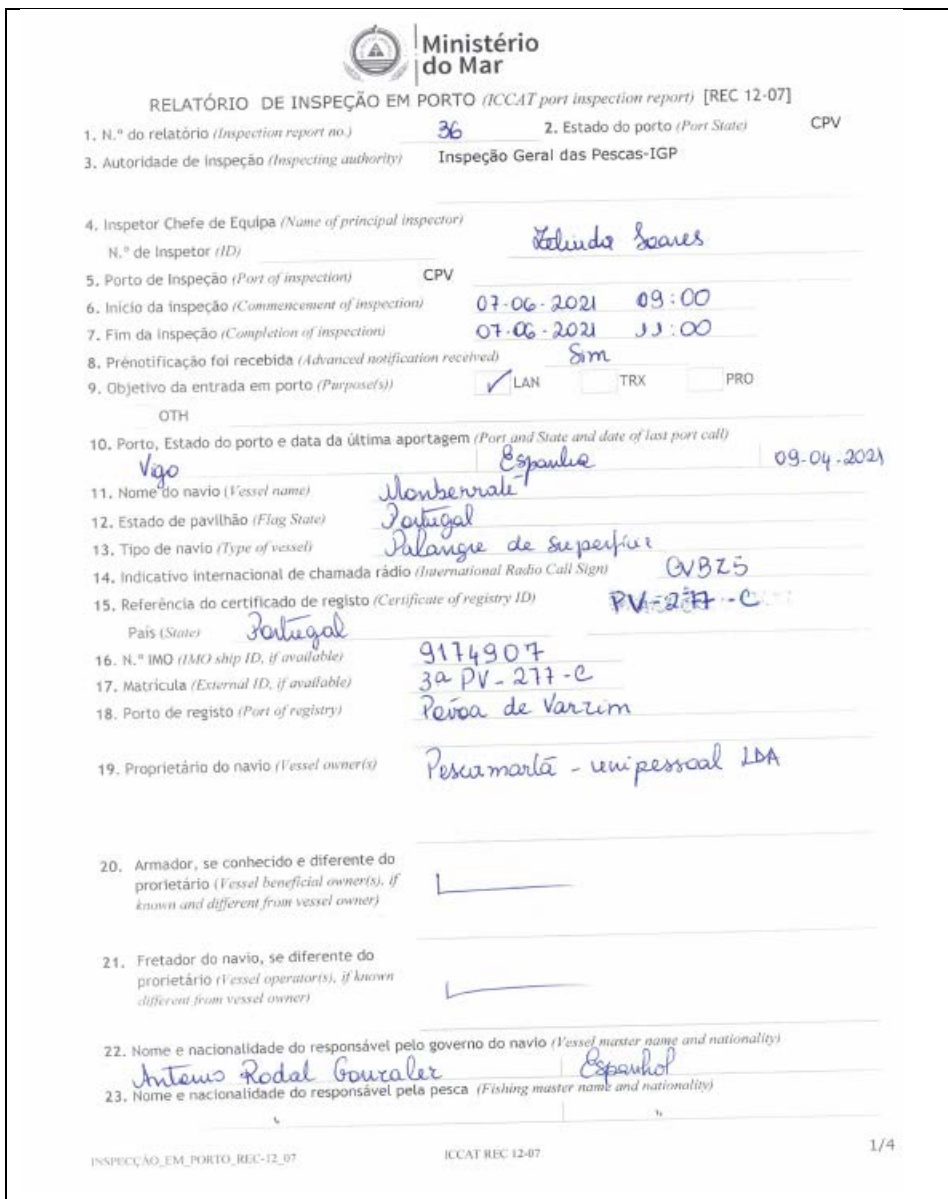 Ministério
do Mar
RELATÓRIO DE INSPEÇÃO EM PORTO (ICCAT port inspection report) [REC 12-07]
1. N.º do relatório (Inspection report no.) 36 2. Estado do porto (Port State) CPV
3. Autoridade de inspeção (Inspecting authority) Inspeção Geral das Pescas-IGP
4. Inspetor Chefe de Equipa (Name of principal inspector)
N.º de Inspetor (ID) Zelinda Soares
5. Porto de Inspeção (Port of inspection) CPV
6. Início da inspeção (Commencement of inspection) 07-06-2021 09:00
7. Fim da inspeção (Completion of inspection) 07-06-2021 11:00
8. Prénotificação foi recebida (Advanced notification received) Sim
9. Objetivo da entrada em porto (Purpose(s)) ✓ LAN TRX PRO
OTH
10. Porto, Estado do porto e data da última aportagem (Port and State and date of last port call)
Vigo Espanha 09-04-2021
11. Nome do navio (Vessel name) Monserrate
12. Estado de pavilhão (Flag State) Portugal
13. Tipo de navio (Type of vessel) Palangre de
14. Indicativo internacional de chamada rádio (International Radio Call Sign)
15. Referência do certificado de registo (Certificate of registry ID) PV-277-C
País (State) Portugal
16. N.º IMO (IMO ship ID, if available) 9174907
17. Matrícula (External ID, if available) PV-277-C
18. Porto de registo (Port of registry) Povoa de Varzim
19. Proprietário do navio (Vessel owner(s) - unipessoal LDA
20. Armador, se conhecido e diferente do
prorietário (Vessel beneficial owner(s), if
known and different from vessel owner)
21. Fretador do navio, se diferente do
prorietário (Vessel operator(s), if known
different from vessel owner)
22. Nome e nacionalidade do responsável pelo governo do navio (Vessel master name and nationality)
Antonio Rodal Gonzalez Espanhol
23. Nome e nacionalidade do responsável pela pesca (Fishing master name and nationality)
" "
INSPECÇÃO_EM_PORTO_REC-12_07 ICCAT REC 12-07 1/4